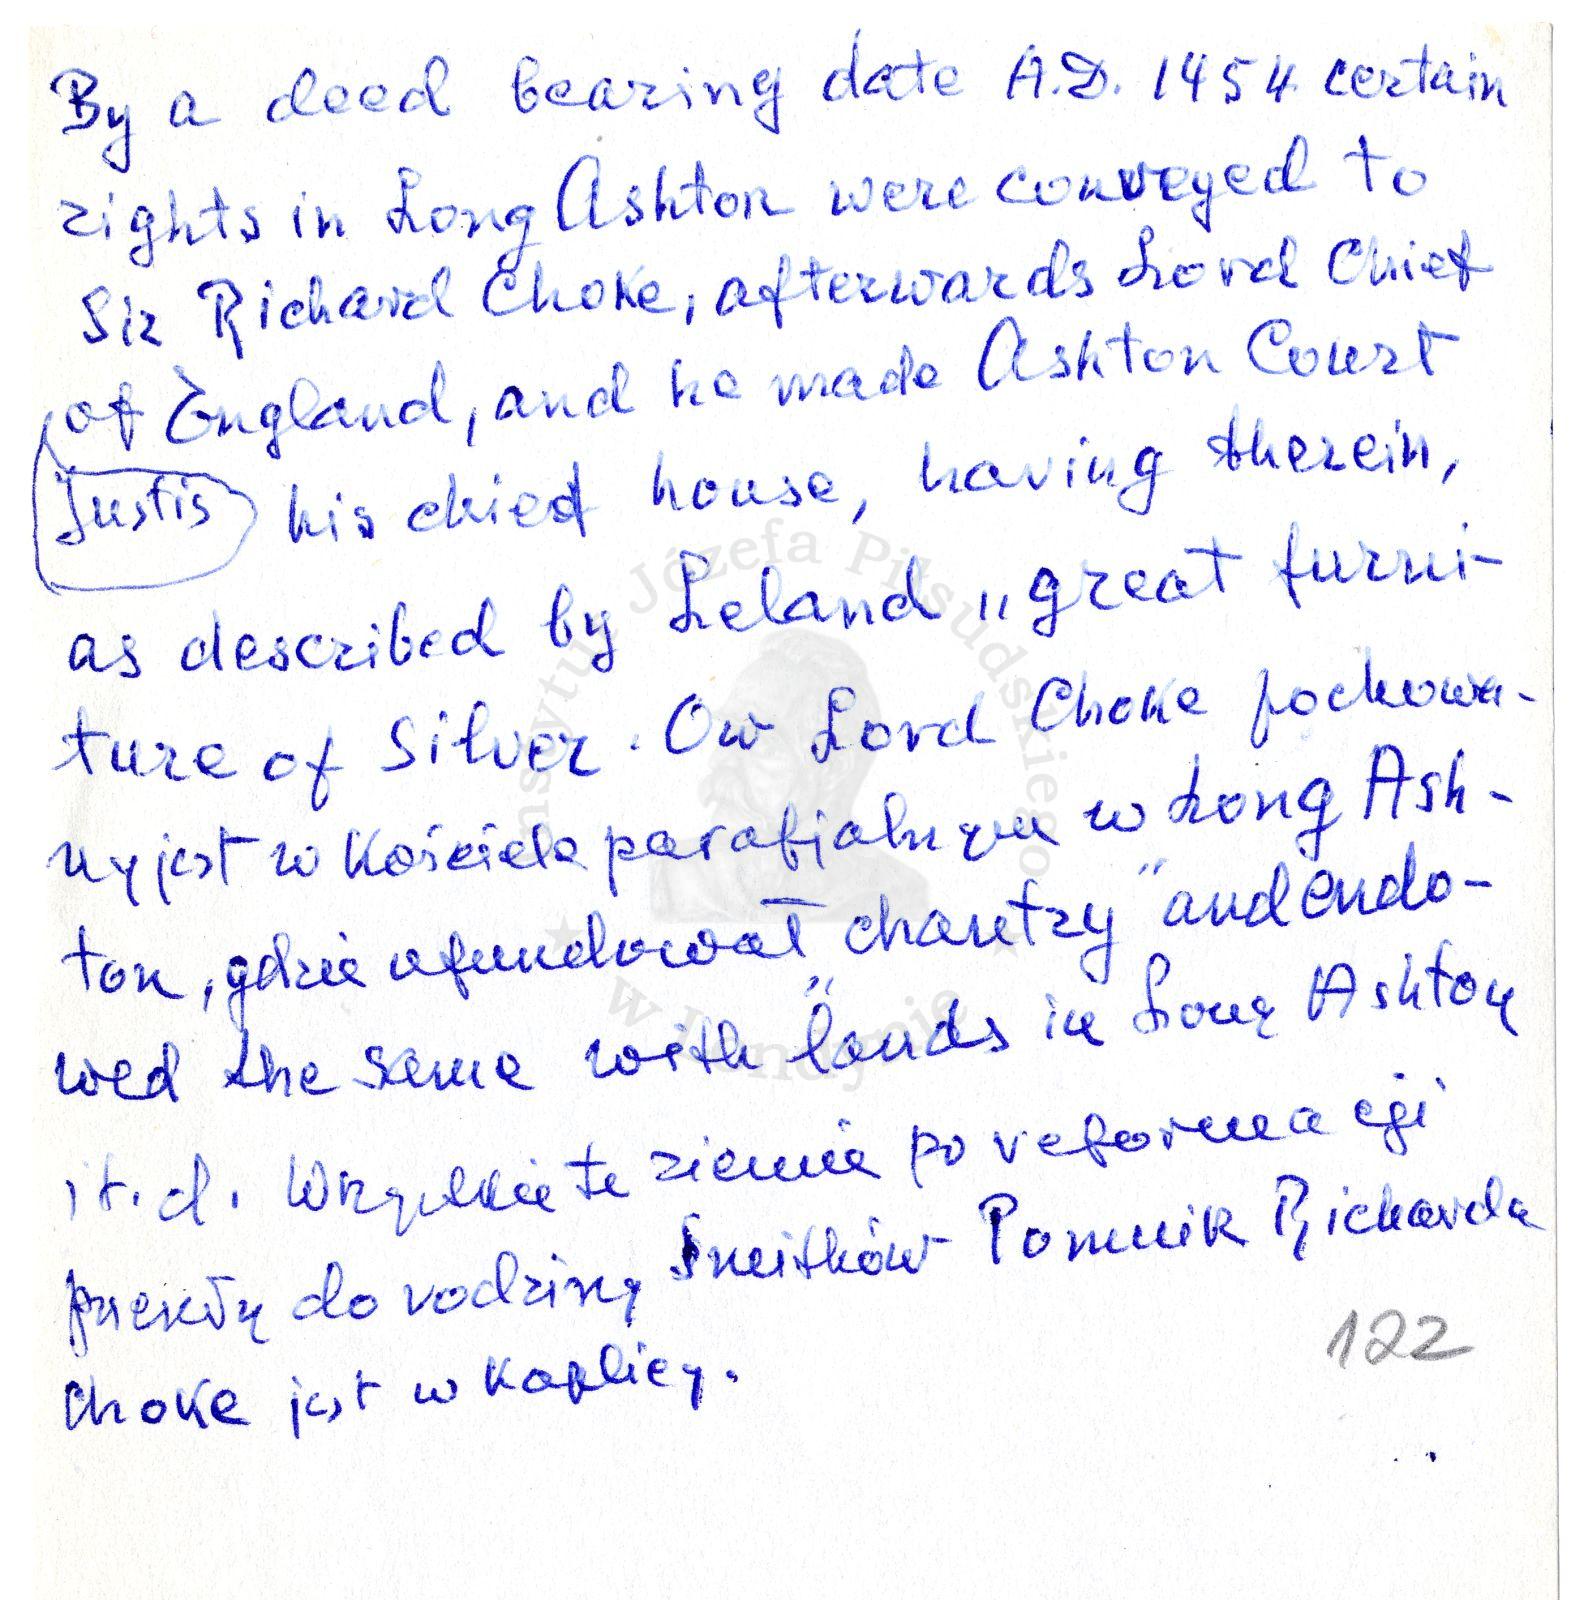 By a deed bearing date A.D. 1454 certain
rights in Long Ashton were conveyed to
Sir Richard Choke, afterwards Lord Chief
of England, and he made Ashton Court
Justis his chief house, having therein,
as described by Leland „great furni-
ture of Silver. Ow Lord Choke pochowa-
ny jest w Kościele parafjalnym w Long Ash-
ton, gdzie ufundował chantry "and endo-
wed the same with "lands in Long Ashton
it.d. Wszystkie te ziemie po reformacji
przeszły do rodziny Smithów Pomnik Richarda
Choke jest w Kaplicy.
122
Instytut Józefa Piłsudskiego
w Londynie